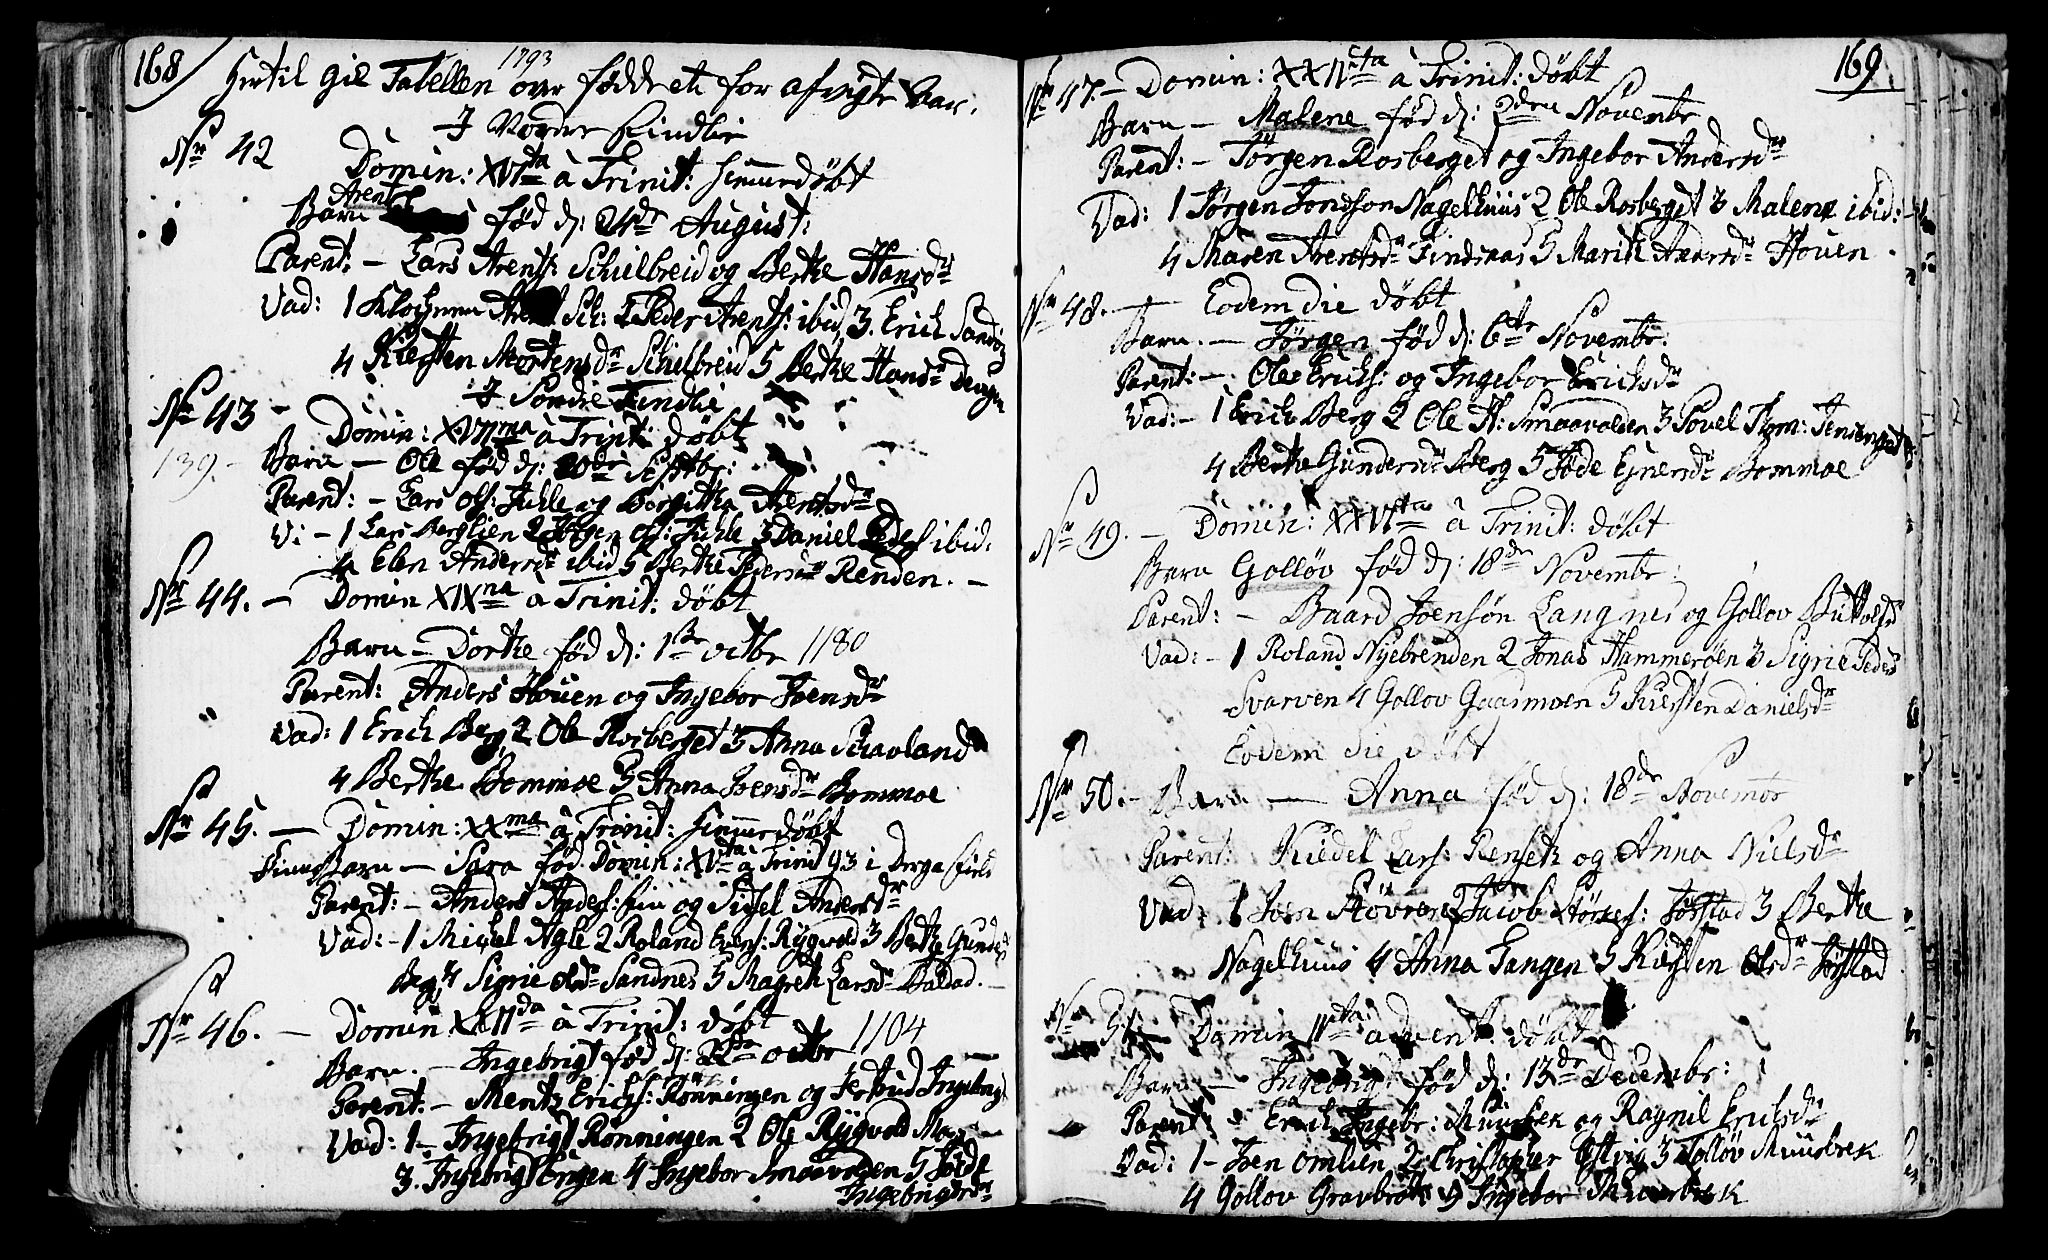 168
1793
Hertil gik Tabellen over fødde etc for afvigte Aar.
J Nordre Findlie
No 42
Domin: XVIta à Trinit: hiemmedøbt
Arent
Barn født d: 24de August:
Parent: - Lars Arents: Schielbreid og Berthe Hansdr
Vad: 1 Klochmen Arent Sch: 2 Peder Arents: ibid 3. Erich Sandøy
4 Kiersten Mortensdr Schielbreid 5 Berthe Hansdr Devigen
J Søndre Findlie
No 43 - Domin: XVIIma à Trinit: døbt
139. - Barn - Ole fød d: 20de Septbr:
Parent: - Lars Ols: Juhle og Borgitha Arentsdr
V: - 1 Lars Berglien 2 Jørgen Ols: Juhle 3 Daniel Peders ibid:
4 Elen Andersdr ibid 5 Berthe Pedersdr Renden. -
No 44. - Domin XIXna à Trinit: døbt
Barn - Dorthe fød d: 1ste octbr 1180
Parent: Anders Houen og Ingebor Joensdr
Vad: 1 Erich Berg 2 Ole Rosberget 3 Anna Schavland
4 Berthe Bommoe 5 Anna Joensdr Bommoe
No 45. - Domin: XXma à Trinit: hiemmedøbt
Finne Barn - Sara fød Domin: XVta à Trinit 93 i Derga field
Parent: - Anders Anders: Fin og Sissel Andersdr
Vad: - 1 Michel Agle 2 Roland Evens: Rygvold 3 Berthe Gunders
Berg 4 Sigrie Olsdr Sandnes 5 Magreth Larsdr Bustad. -
No 46. - Domin XXIIda à Trinit: døbt
Barn. - Ingebrigt fød d: 22de octbr 1184
Parent: - Mentz Erichs: Rønningen og Jertrud Ingebrigs
Vad: 1 - Ingebrigt Rønningen 2 Ole Rygvold Moe -
3. Ingebrigt Engen 4 Ingebor Smaavolden 5 Føde
Ingebrigtsdr
169
No 47. - Domin: XXIIIta à Trinit: døbt
Barn - Malene fød d: 2den Novembr
Parent: - Jørgen Rosberget og Ingebor Andersdr
Vad: 1 Jørgen Jonsson Nagelhuus 2 Ole Rosberget 3 Malene ibid: -
4 Maren Arentsdr Findsaas 5 Marith Andersdr Houen.
No 48. - Eodem die døbt
Barn. - Jørgen fød d: 6te Novembr:
Parent: - Ole Erichs: og Ingebor Erichsdr
Vad: - 1 Erich Berg 2 Ole H: Smaavolden 3 Povel Thom: Tensenget
4 Berthe Gundersdr Berg 5 Føde Ejnersdr Bommoe
No 49. - Domin: XXVIta à Trinit: døbt
Barn Golløv fød d: 18de Novembr:
Parent: - Baard Joensøn Langnes og Gollov Buttolfsdr
Vad: - 1 Roland Nyebrenden 2 Jonas Hammerøen 3 Sigrie Peders
Svarven 4 Gollov Gaasmoen 5 Kiersten Danielsdr
Eodem die døbt
No 50. - Barn - Anna fød d: 18de Novembr
Parent: Kiedel Lars: Renseth og Anna Nielsdr
Vad: 1 Joen Støvren 2 Jacob Størkers: Jørstad 3 Berthe
Nagelhuus 4 Anna Tangen 5 Kiersten Olsdr Jørstad
No 51 - Domin IIIta advent: døbt
Barn - Ingebrigt fød d: 13de Decembr:
Parent: - Erich Ingebr: Muusbek og Ragnil Erichsdr
Vad: 1 - Joen Omlien 2 Christopher Østvig 3 Tolløv Muusbek
4 Gollov Gravbrøt 5 Ingebor Muusbek